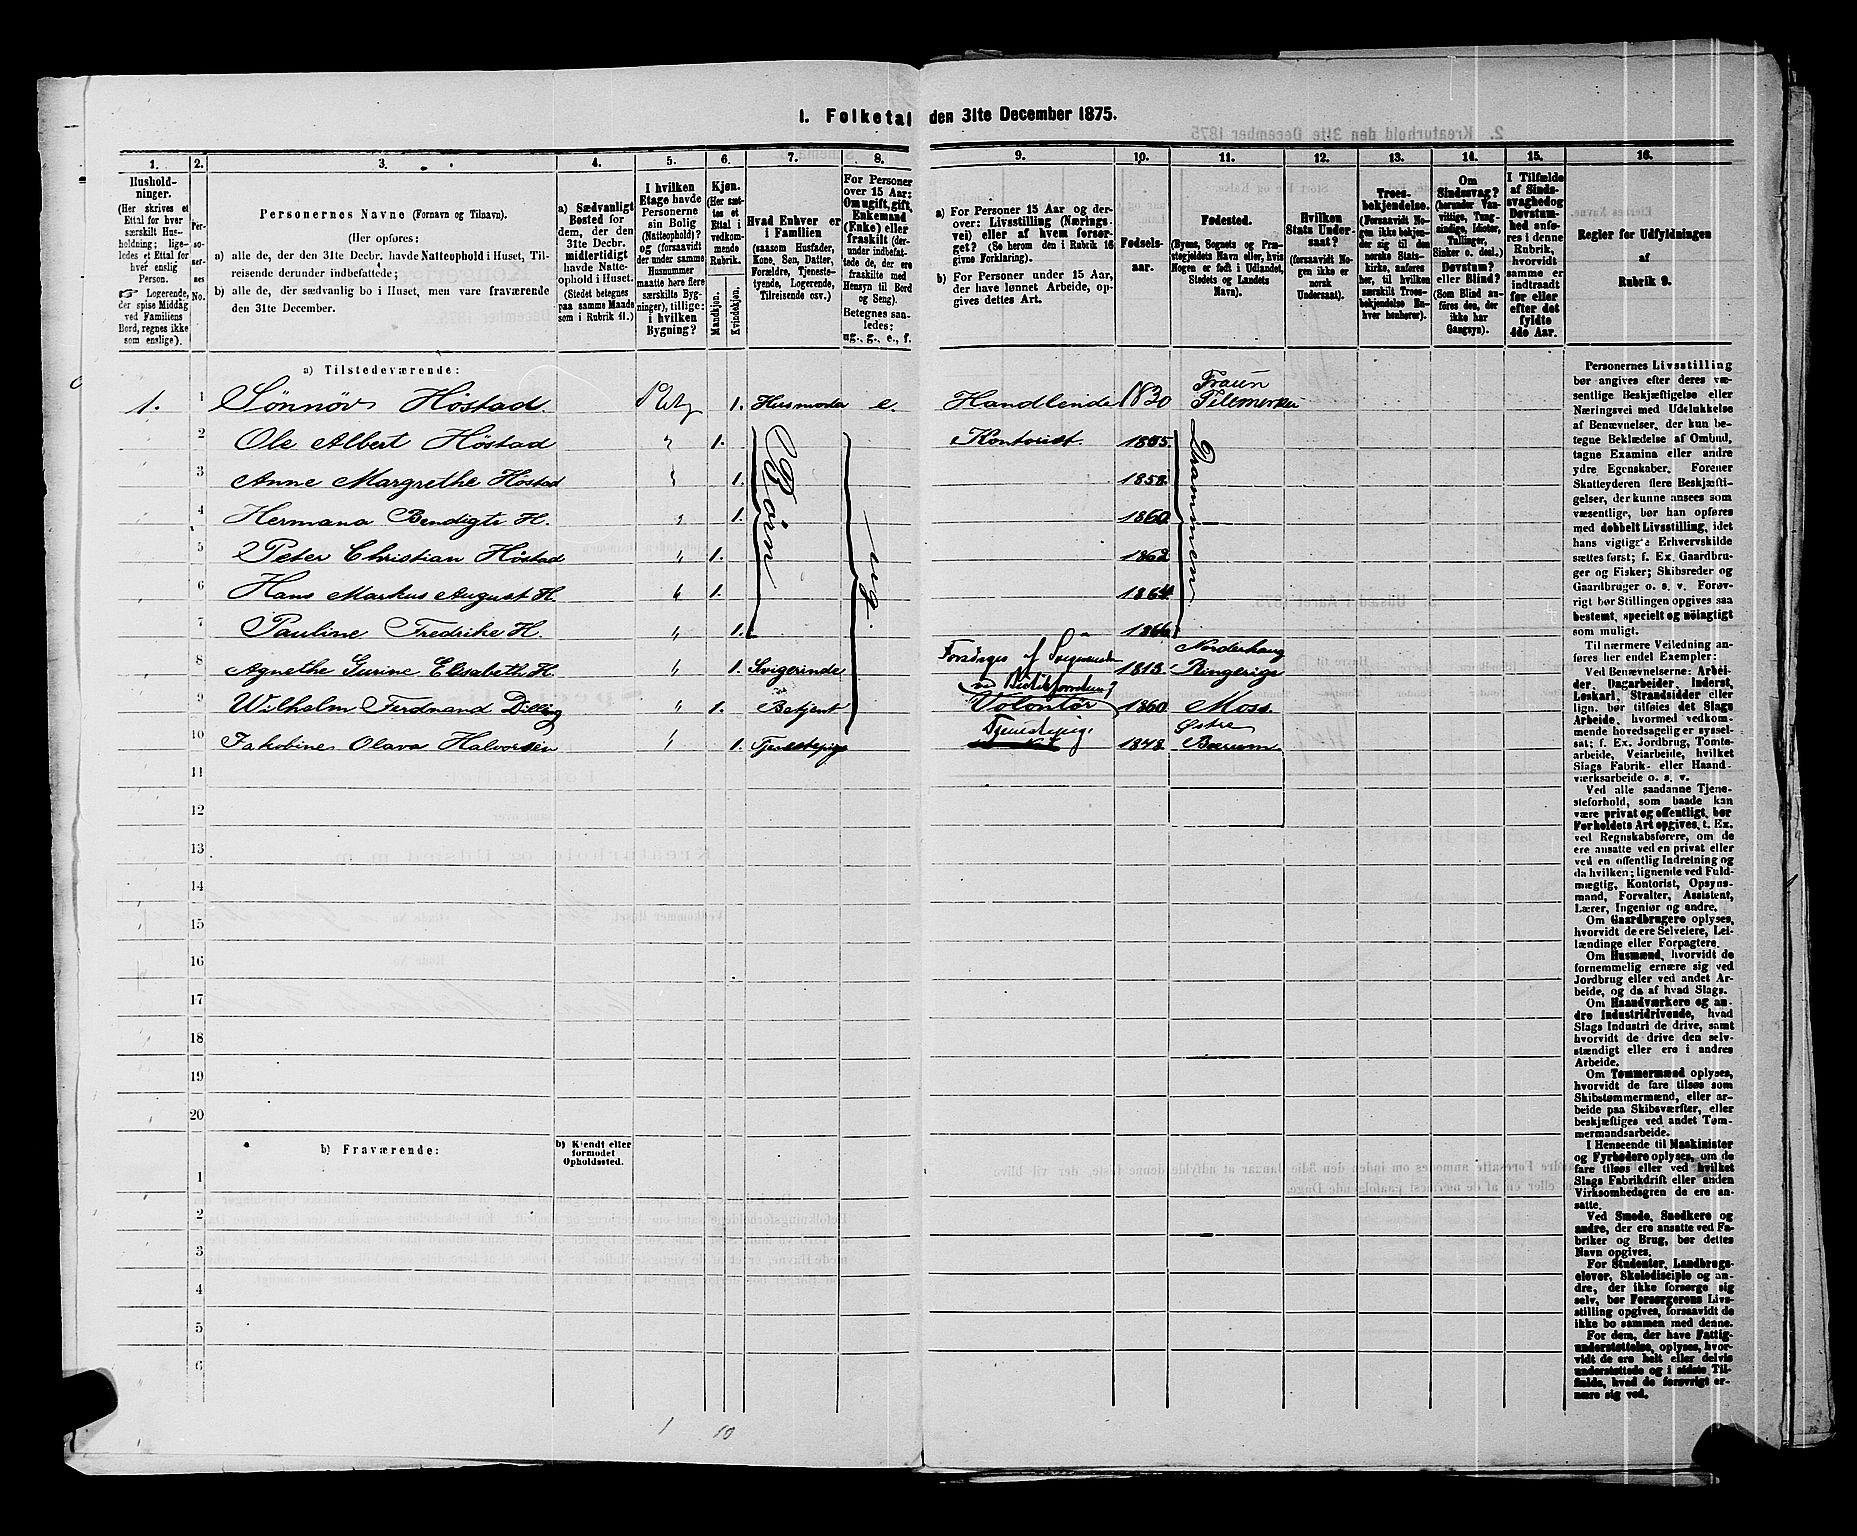 1. Folketal den 31te December 1875.
1. 2. 3. 4. 5. 6. 7. 8. 9. 10. 11. 12. 13. 14. 15. 16.
Hushold-
ninger.
(Her skrives et
Ettal for hver
særskilt Hus-
holdning; lige-
ledes et Ettal for
hver enslig
Person.
Logerende,
der spise Middag
ved Familiens
Bord, regnes ikke
som enslige).
Per-
so-
ner-
nes
No.
Personernes Navne (Fornavn og Tilnavn).
(Her opføres:
a) alle de, der den 31te Decbr. havde Natteophold i Huset, Til-
reisende derunder indbefattede;
b) alle de, der sædvanlig bo i Huset, men vare fraværende
den 31te December.
a) Sædvanligt
Bosted for
dem, der den
31te Decbr.
midlertidigt
havde Natte-
ophold i Huset.
(Stedet betegnes
paa samme Maade
som i Rubrik 11.)
I hvilken
Etage havde
Personerne
sin Bolig
(Natteophold)?
og (forsaavidt
der under samme
Husnummer
maatte høre flere
særskilte Byg-
ninger), tillige:
i hvilken
Bygning?
Kjøn.
(Her sæt-
tes et
Ettal i
vedkom-
mende
Rubrik.
Mandkjøn.
Kvindekjøn.
Hvad Enhver er
i Familien
(saasom Husfader,
Kone, Søn, Datter,
Forældre, Tjeneste-
tyende, Logerende,
Tilreisende osv.)
For Personer
over 15 Aar:
Om ugift, gift,
Enkemand
(Enke) eller
fraskilt (der-
under indbefat-
tede de, der ere
fraskilte med
Hensyn til Bord
og Seng).
Betegnes saa-
ledes:
ug., g., e., f.
a) For Personer 15 Aar og der-
over: Livsstilling (Nærings-
vei) eller af hvem forsør-
get? (Se herom den i Rubrik 16
givne Forklaring).
b) For Personer under 15 Aar,
der have lønnet Arbeide, op-
gives dettes Art.
Fødsels-
aar.
Fødested.
(Byens, Sognets og Præ-
stegjeldets Navn eller, hvis
Nogen er født i Udlandet,
Stedets og Landets
Navn).
Hvilken
Stats Under-
saat?
(forsaavidt No-
gen ikke er
norsk
Undersaat).
Troes-
bekjendelse.
(Forsaavidt No-
gen ikke bekjen-
der sig til den
norske Stats-
kirke, anføres
her, til hvilken
særskilt Troes-
bekjendelse En-
hver henhører).
Om
Sindssvag?
(herunder Van-
vittige, Tung-
sindige, Idioter,
Tullinger,
Sinker o. desl.)
Døvstum?
eller Blind?
(Som Blind an-
føres den, der
ikke har
Gangsyn).
I Tilfælde
af Sinds-
svaghed og
Døvstum-
hed anfø-
res i denne
Rubrik,
hvorvidt
samme er
indtraadt
før eller
efter det
fyldte
4de Aar.
Regler for Udfyldningen
af
Rubrik 9.
a) Tilstedeværende:
1. 1 Sønnøv Høstad. 1. Husmoder e. Handlende 1830
Telemerken
2 Ole Albert Høstad 1. Kontorist. 1855.
3 Anne Margrethe Høstad 1.
4 Hermana Bendigte H. 1. 1860.
5 Peter Christian Høstad 1. 1862
6 Hans Markus August H. 1. 1864
7 Pauline Fredrike H. 1. 1866
Børn
ug.
Drammen
Norderhoug
8 Agnethe Gurine Elisabeth H. 1. Svigerinde 1813. Ringerige
9 Wilhelm Ferdinand Dilling 1. Betjent Volontør 1860. Moss.
Tjenestepige Østre
10 Jakobine Olava Halvorsen 1. Tjenestepige 1848. Bærum
11
12
13
14
15
16
17
18
19
20
b) Fraværende:
b) Kjendt eller
formodet
Opholdssted.
1
2
3
4
5
6
1 10
Personernes Livsstilling
bør angives efter deres væ-
sentlige Beskjæftigelse eller
Næringsvei med Udelukkelse
af Benævnelser, der kun be-
tegne Beklædelse af Ombud,
tagne Examina eller andre
ydre Egenskaber. Forener
Skatteyderen flere Beskjæfti-
gelser, der kunne ansees som
væsentlige, bør han opføres
med dobbelt Livsstilling, idet
hans vigtigste Erhvervskilde
sættes først; f. Ex. Gaardbru-
ger og Fisker; Skibsreder og
Gaardbruger o. s. v. Forøv-
rigt bør Stillingen opgives saa
bestemt, specielt og nøiagtigt
som muligt.
Til nærmere Veiledning an-
føres her endel Exempler:
Ved Benævnelserne: Arbei-
der, Dagarbeider, Inderst,
Løskarl, Strandsidder eller
lign. bør tilføies det Slags
Arbeide, hvormed vedkom-
mende hovedsagelig er syssel-
sat; f. Ex. Jordbrug, Tomte-
arbeide, Veiarbeide, hvilket
Slags Fabrik- eller Haand-
værksarbeide o. s. v.
Ved alle saadanne Tjene-
steforhold, som baade kan
være privat og offentligt, bør
Forholdets Art opgives, t. Ex.
ved Regnskabsførere, om de
ere ansatte ved en privat eller
ved en offentlig Indretning og
da hvilken; lignende ved Fuld-
mægtig, Kontorist, Opsyns-
mand, Forvalter, Assistent,
Lærer, Ingeniør og andre.
Om Gaardbrugere oplyses,
hvorvidt de ere Selveiere, Lei-
lændinge eller Forpagtere.
Om Husmænd, hvorvidt de
fornemmelig ernære sig ved
Jordbrug eller ved andet Ar-
beide, og da af hvad Slags.
Om Haandværkere og an-
dre Industridrivende, hvad
Slags Industri de drive, samt
hvorvidt de drive den selv-
stændigt eller ere i andres
Arbeide.
Om Tømmermænd oplyses,
hvorvidt de fare tilsøs som
Skibstømmermænd, eller ar-
beide paa Skibsværfter, eller
beskjæftiges ved andet Tøm-
mermandsarbeide.
I Henseende til Maskinister
og Fyrbødere oplyses, om de
fare tilsøs eller ved hvilket
Slags Fabrikdrift eller anden
Virksomhedsgren de ere an-
satte.
Ved Smede, Snedkere og
andre, der ere ansatte ved Fa-
briker og Brug, bør dettes
Navn opgives.
For Studenter, Landbrugs-
elever, Skoledisciple og an-
dre, der ikke forsørge sig
selv, bør Forsørgerens Livs-
stilling opgives, forsaavidt de
ikke bo sammen med denne.
For dem, der have Fattig-
understøttelse, oplyses, hvor-
vidt de ere helt eller delvis
understøttede og i sidste Til-
fælde, hvad de forøvrigt er-
nære sig ved.